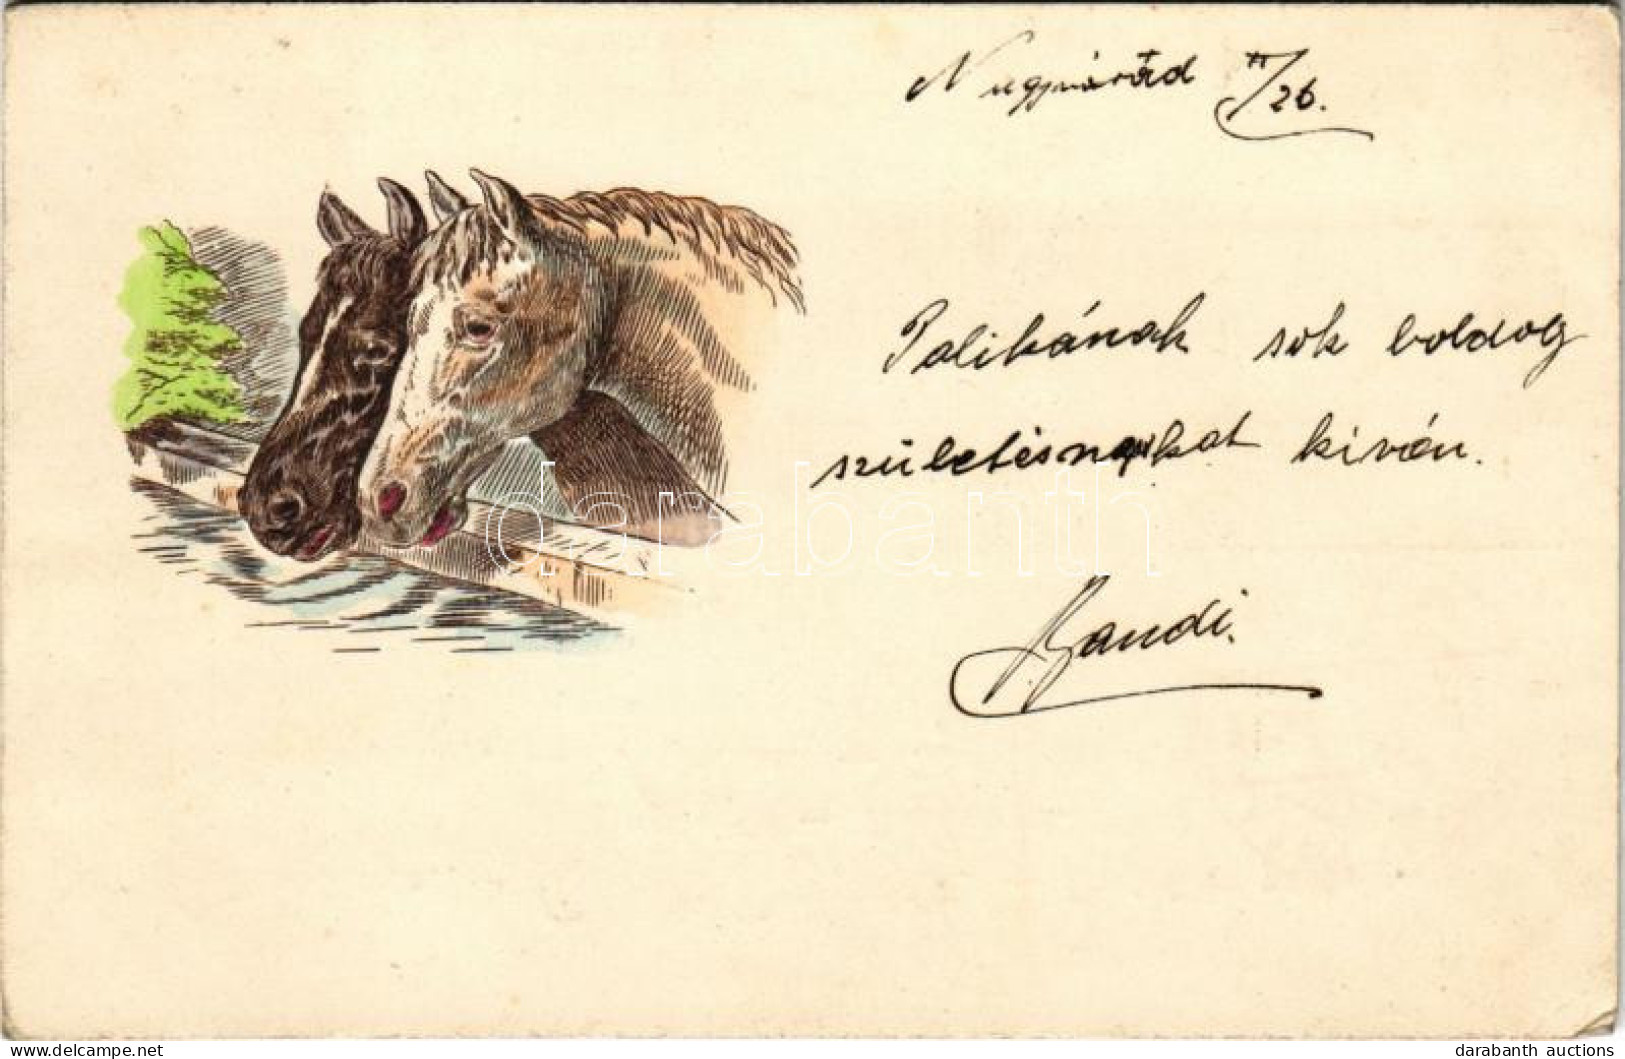 Nagyvárad II/26.
Palikának sok boldog
születésnapokat kíván.
Bandi.
darabanth
www.delcampe.net
darabanth auctions